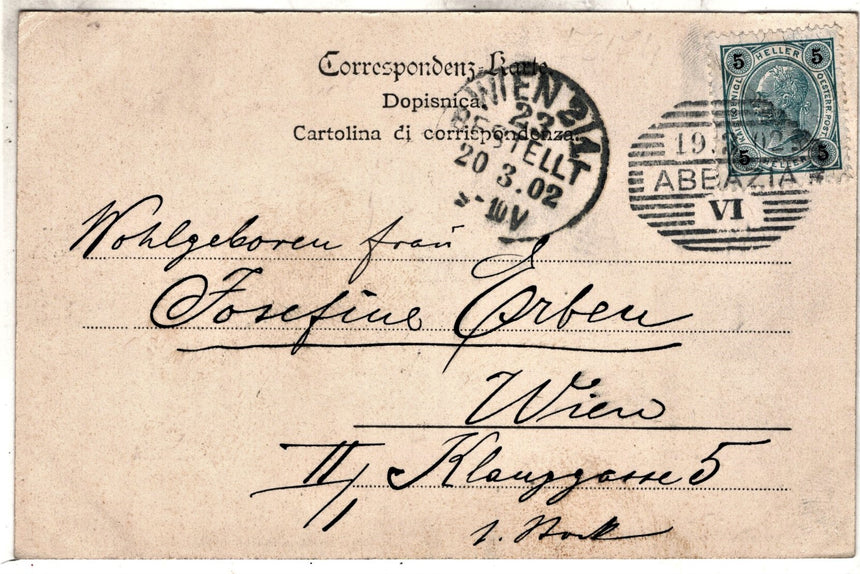 Correspondenz-Karte
Dopisnica.
Cartolina di corrispondenza.
WIEN 2/1
23
BESTELLT
20 3.02
-10V
5 HELLER 5
5 HELLER 5
19. 02
ABBAZIA *
VI
Wohlgeboren Frau
Josefine Erben
Wien
II/1 Klanggasse 5
1. Stock